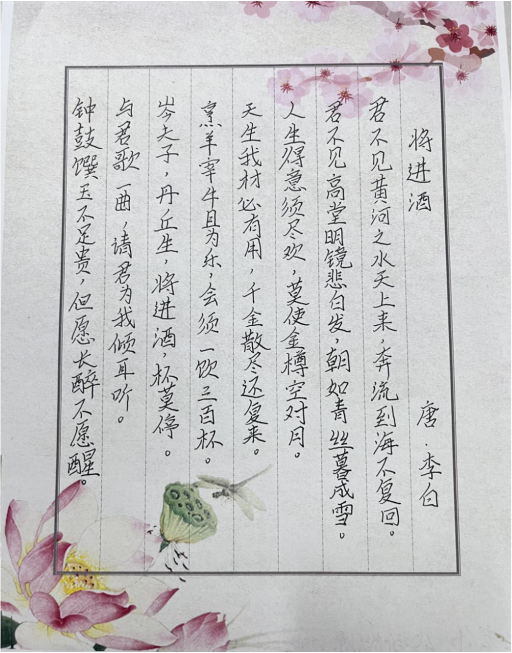 将进酒
唐·李白
君不见黄河之水天上来，奔流到海不复回。
君不见高堂明镜悲白发，朝如青丝暮成雪。
人生得意须尽欢，莫使金樽空对月。
天生我材必有用，千金散尽还复来。
烹羊宰牛且为乐，会须一饮三百杯。
岑夫子，丹丘生，将进酒，杯莫停。
与君歌一曲，请君为我倾耳听。
钟鼓馔玉不足贵，但愿长醉不愿醒。